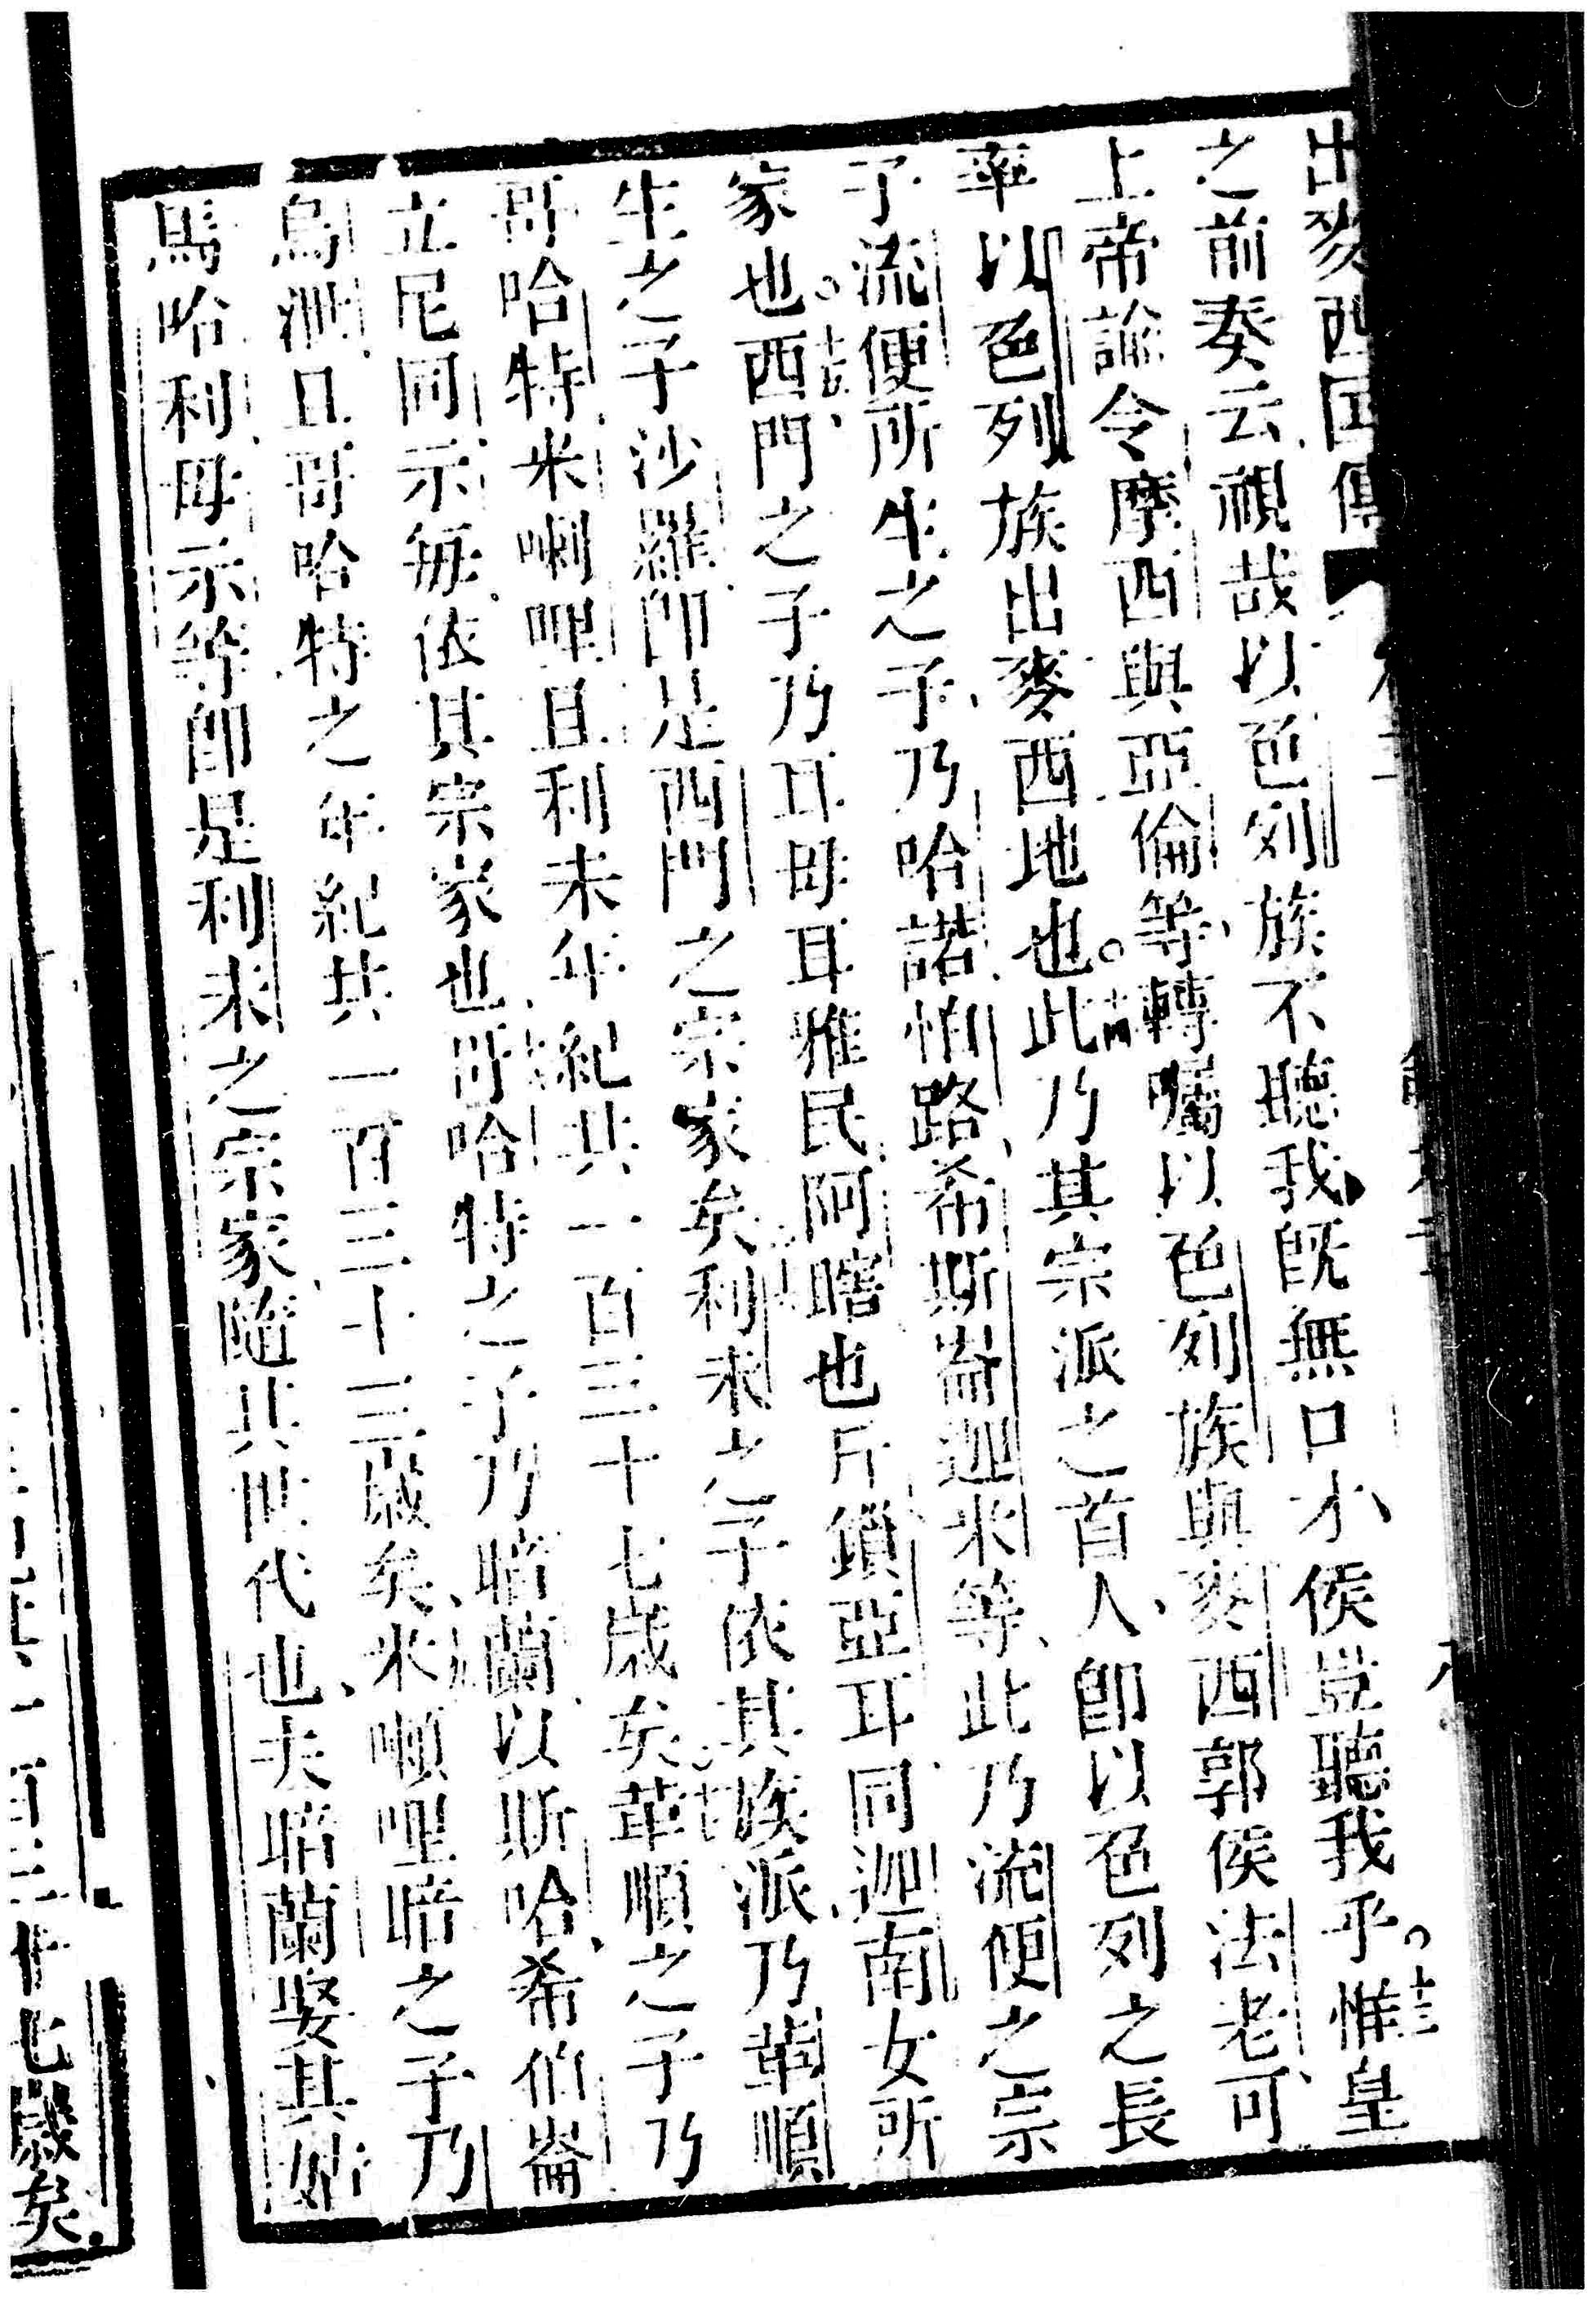 出麥西國傳
之前奏云視哉以色列族不聽我旣無口才侯豈聽我乎惟皇
上帝諭令摩西與亞倫等轉囑以色列族與麥西郭侯法老可
率以色列族出麥西地也此乃其宗派之首人卽以色列之長
子流便所生之子乃哈諾怕路希斯崙迦米等此乃流便之宗
家也西門之子乃耳母耳雅民阿瞎也斤鎖亞耳同迦南女所
生之子沙羅卽是西門之宗家矣利未之子依其族派乃革順
哥哈特米喇哩且利未年紀共一百三十七歲矣革順之子乃
立尼同示每依其宗家也哥哈特之子乃暗蘭以斯哈希伯崙
烏泄且哥哈特之年紀共一百三十三歲矣米喇哩暗之子乃
馬哈利母示等卽是利未之宗家隨其世代也夫暗蘭娶其
七歲矣